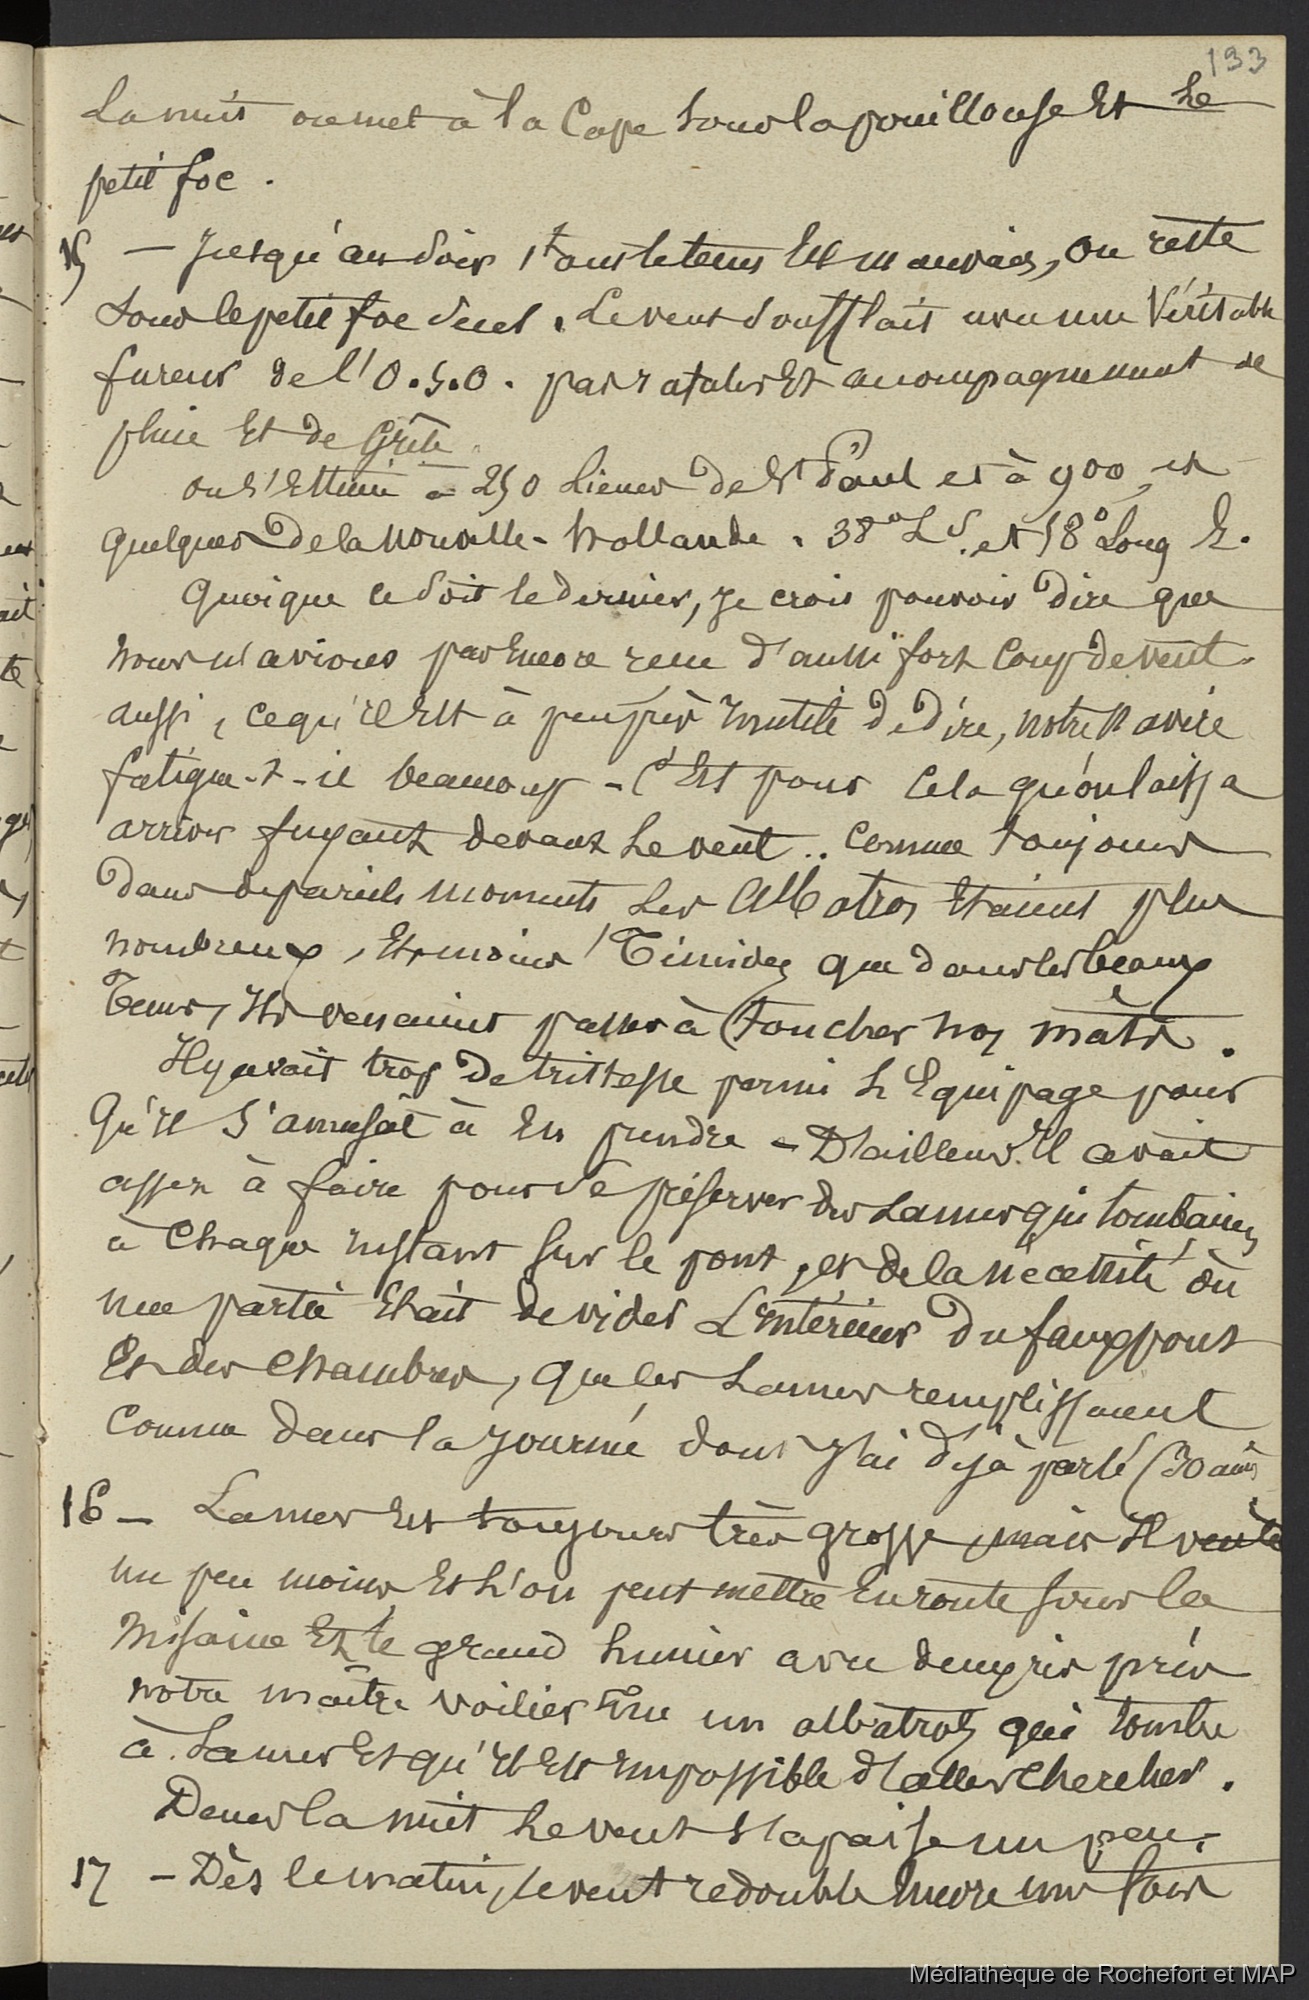 133
La nuit on met à la Cape sous la pouillouse Et le
petit foc.
15 — Jusqu'au soir tous le tems Est mauvais, on reste
sous le petit foc seul. Le vent soufflait avec une Véritable
fureur de l'O.S.O. par rafales Et accompagnement de
pluie Et de Grêle
on s'Estime à 250 Lieues de St Paul et à 900, et
quelques de la Nouvelle-Hollande. 38° L S. et 58° Long E.
Quoique ce soit le dernier, je crois pouvoir dire que
nous n'avions pas Encore reçu d'aussi fort Coup de vent.
aussi, ce qu'il Est à peu près Inutile de dire, notre Navire
fatigua-t-il beaucoup - C'Est pour Cela qu'on laissa
arriver fuyant devant Le vent.. Comme toujours
dans de pareils moments Les Albatros Etaient plus
nombreux, Et moins Timides que dans les beaux
Tems, Ils venaient passer à toucher nos mâts.
Il y avait trop de tristesse parmi L'Equipage pour
Qu'Il s'amusât à En prendre - D'ailleurs Il avait
assez à faire pour se préserver des Lames qui tombaient
à Chaque Instant sur le pont, et de la nécessité où
une partie Etait de vider L'Intérieur du faux pont
Et des Chambres, que les Lames remplissaient
Comme dans la journée dont j'ai déjà parlé (30 août
16 — La mer Est toujours très grosse mais Il vente
un peu moins Et L'on peut mettre En route sous la
Misaine Et le grand hunier avec deux ris pris
notre maître voilier tue un albatros qui tombe
à La mer Et qu'Il Est Impossible d'aller chercher.
Dans la nuit Le vent s'apaise un peu.
17 — Dès le matin, le vent redouble Encore une fois
Médiathèque de Rochefort et MAP